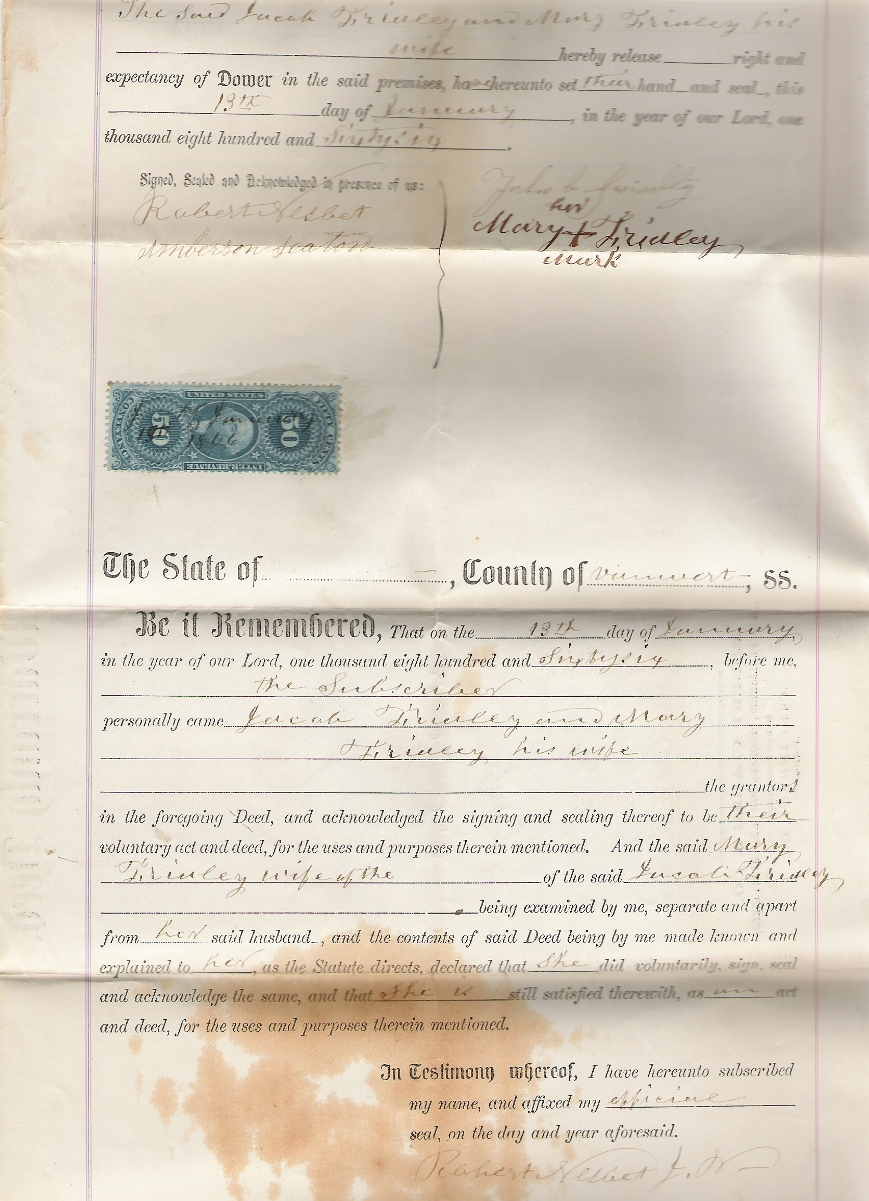 The Said Jacob Fridley and Mary Fridley his
wife hereby release right and
expectancy of Dower in the said premises, have hereunto set their hand and seal, this
13th day of January, in the year of our Lord, one
thousand eight hundred and Sixtysix.
Signed, Sealed and Acknowledged in presence of us:
Robert Nesbet
Amberson Seaton
Jakob
her
Mary + Fridley
Mark
UNITED STATES
CONVEYANCE 50 50 FIFTY CENTS
13 January
1866
INTER. REVENUE
The State of , County of vanwert, SS.
Be it Remembered, That on the 13th day of January,
in the year of our Lord, one thousand eight hundred and Sixtysix, before me,
the Subscriber
personally came Jacob Fridley and Mary
Fridley his wife
the grantors
in the foregoing Deed, and acknowledged the signing and sealing thereof to be their
voluntary act and deed, for the uses and purposes therein mentioned. And the said Mary
Fridley wife of the of the said Jacob Fridley
being examined by me, separate and apart
from her said husband, and the contents of said Deed being by me made known and
explained to her, as the Statute directs, declared that She did voluntarily, sign, seal
and acknowledge the same, and that She is still satisfied therewith, as an act
and deed, for the uses and purposes therein mentioned.
In Testimony whereof, I have hereunto subscribed
my name, and affixed my official
seal, on the day and year aforesaid.
Robert Nesbet J.